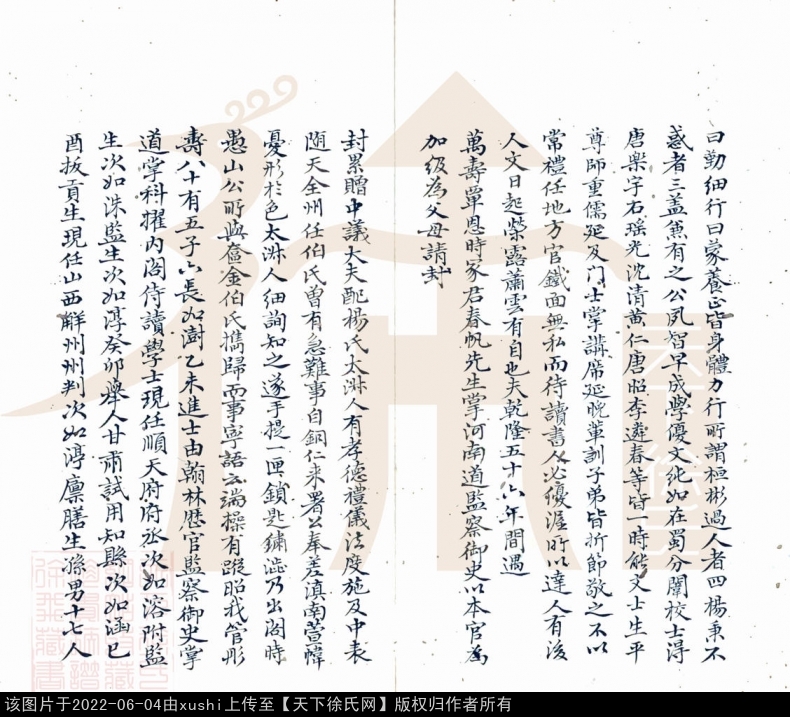 曰勤細行曰蒙養正皆身體力行所謂桓彬過人者四楊秉不
惑者三蓋兼有之公夙智早成學優文純如在蜀分闈校士得
唐樂宇石瑶光沈清黄仁唐昭李遊春等皆一時能文士生平
尊師重儒延及门士掌講席延晚輩訓子弟皆折節敬之不以
常禮任地方官鐵面無私而待讀書人必優渥所以達人有後
人文日起榮露蕭雲有自也夫乾隆五十六年間遇
萬壽覃恩時家君春帆先生掌河南道監察御史以本官爲
加級為父母請封
封累贈中議大夫配楊氏太淑人有孝德禮儀法度施及中表
随天全州任伯氏曾有急難事自銅仁来署公奉差滇南萱幃
憂形於色太淑人細詢知之遂手提一匣鎖匙鏽澁乃出閣時
愚山公所與奩金伯氏攜歸而事寧語云端操有蹤昭我管彤
壽八十有五子六長如澍乙未進士由翰林歷官監察御史掌
道掌科擢内阁侍讀學士現任順天府府丞次如溶附監
生次如洙監生次如淳癸卯舉人甘肅試用知縣次如涵己
酉拔貢生現任山西解州州判次如渟廪膳生孫男十七人
天下徐氏
徐斐藏書
该图片于2022-06-04由xushi上传至【天下徐氏网】版权归作者所有